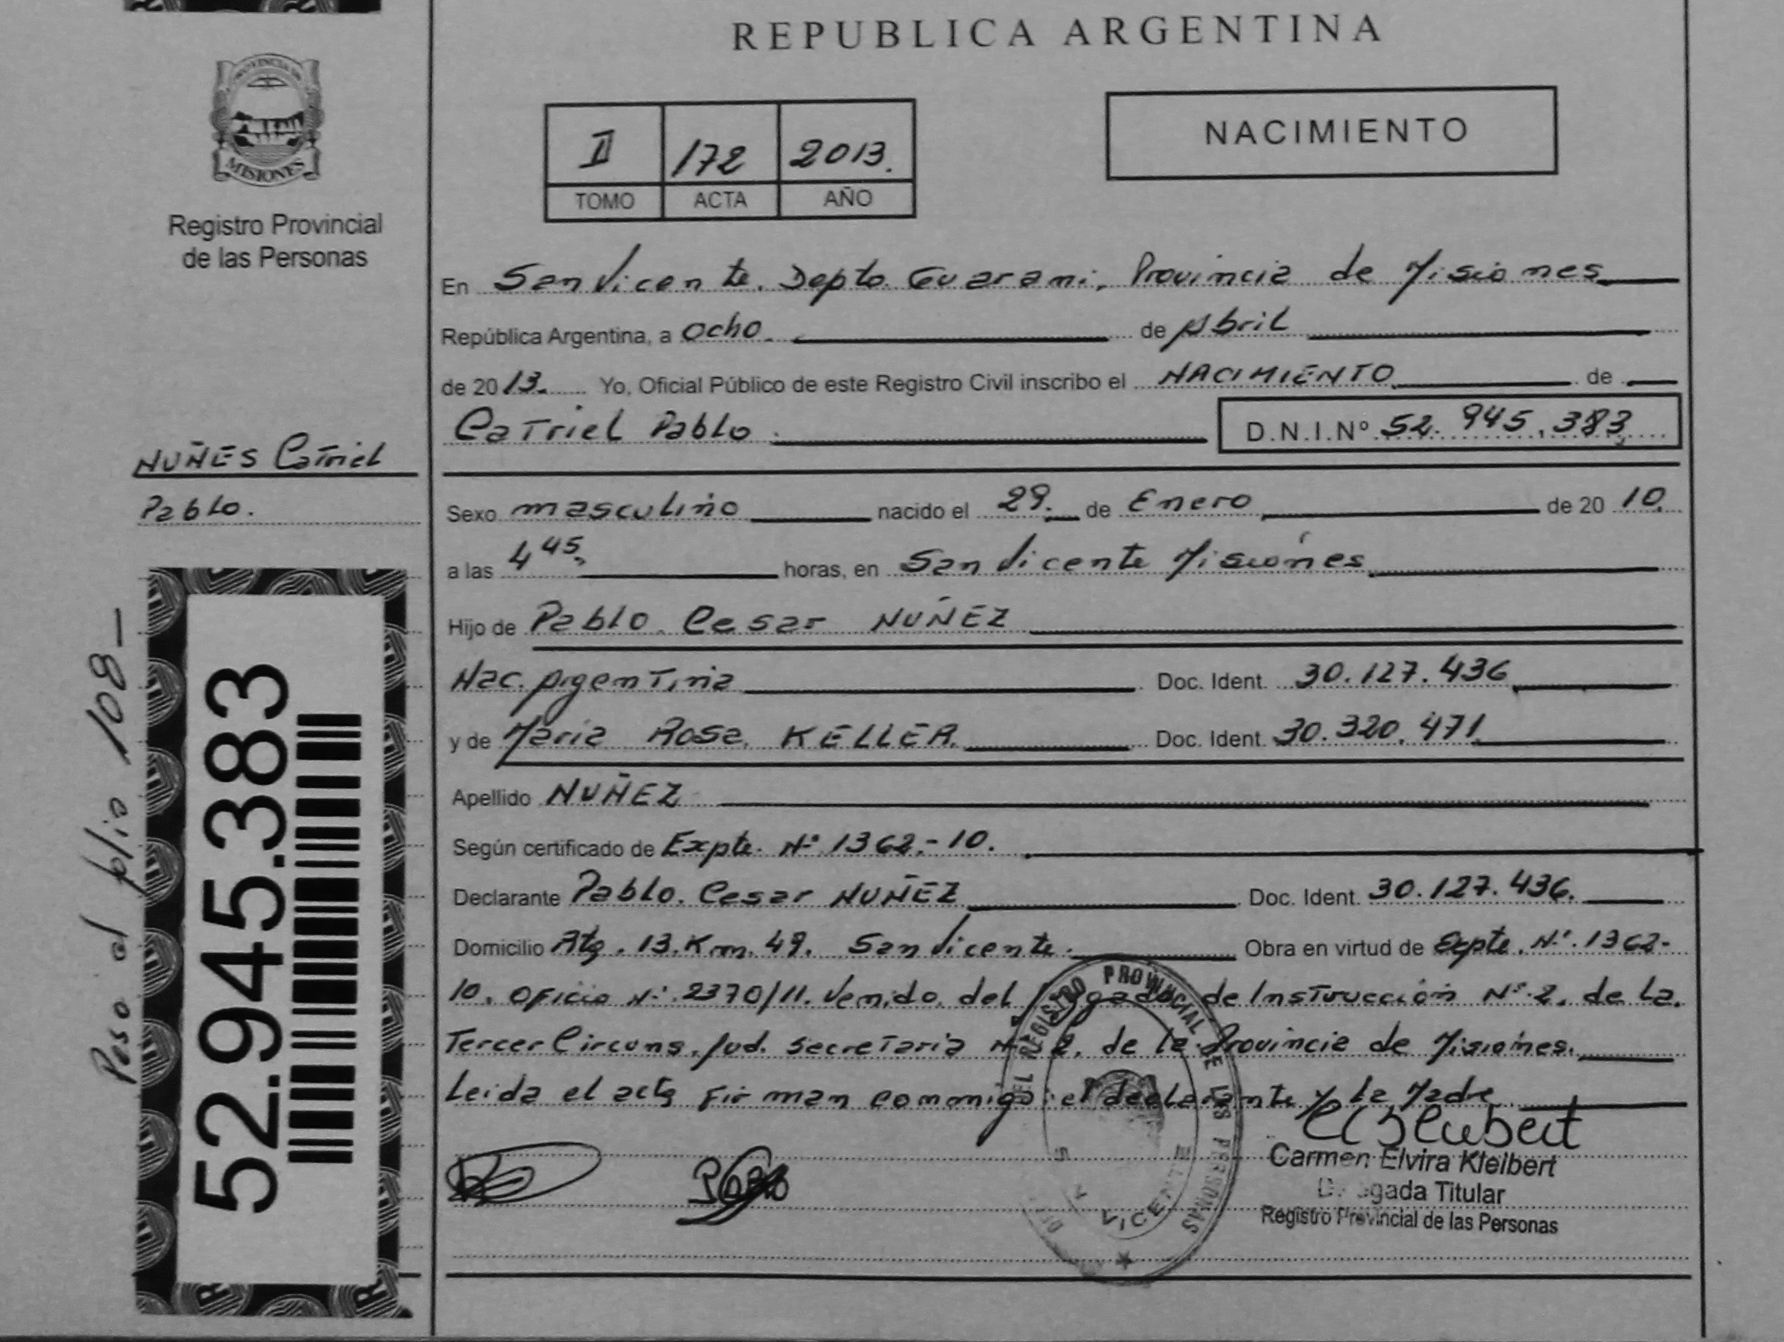 REPUBLICA ARGENTINA
PROVINCIA DE
MISIONES
Registro Provincial
de las Personas
II 172 2013.
TOMO ACTA AÑO
NACIMIENTO
En San Vicente. Depto. Guarani, Provincia de Misiones
República Argentina, a Ocho. de Abril
de 2013. Yo, Oficial Público de este Registro Civil inscribo el NACIMIENTO de
Catriel Pablo. D.N.I.Nº 52.945.383
NUÑES Catriel
Pablo.
Sexo masculino nacido el 29. de Enero de 20 10.
a las 4 45. horas, en San Vicente Misiones
Hijo de Pablo Cesar NUÑEZ
Nac. Argentina Doc. Ident. 30.127.436
y de Maria Rosa KELLER. Doc. Ident. 30.320.471
Apellido NUÑEZ
Según certificado de Expte. Nº 1362.-10.
Declarante Pablo. Cesar NUÑEZ Doc. Ident. 30.127.436.
Domicilio Km. 49. San Vicente. Obra en virtud de Expte. Nº. 1362-
10. Oficio Nº. 2370/11. Venido del Juzgado de Instrucción Nº 2. de la
Tercer Circuns. Jud. Secretaria Nº 2. de la Provincia de Misiones.
Leida el acta firman conmigo el declarante y la Madre
Pablo
Carmen Elvira Kleibert
Delegada Titular
Registro Provincial de las Personas
DEL REGISTRO PROVINCIAL DE LAS PERSONAS
VICENTE
52.945.383
Paso al folio 108-